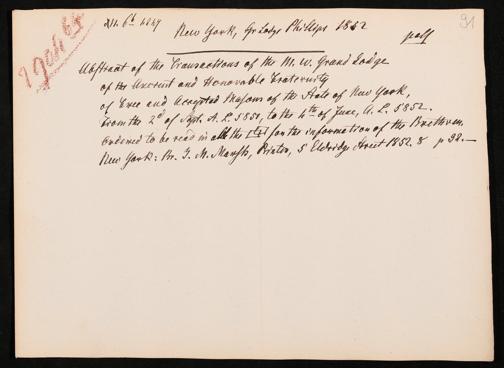 New York, Gr Lodge Phillips 1852
91
Abstract of the Transactions of the M. W. Grand Lodge
of the Ancient and Honorable Fraternity
of Free and Accepted Masons of the State of New York,
from the 2d of Sept. A. L. 5851, to the 4th of June, A. L. 5852.
Ordered to be read in all the [□] for the information of the Brethren.
New York: Br. J. M. Marsh, Printer, 5 Eldridge Street 1852. 8 p 32.—